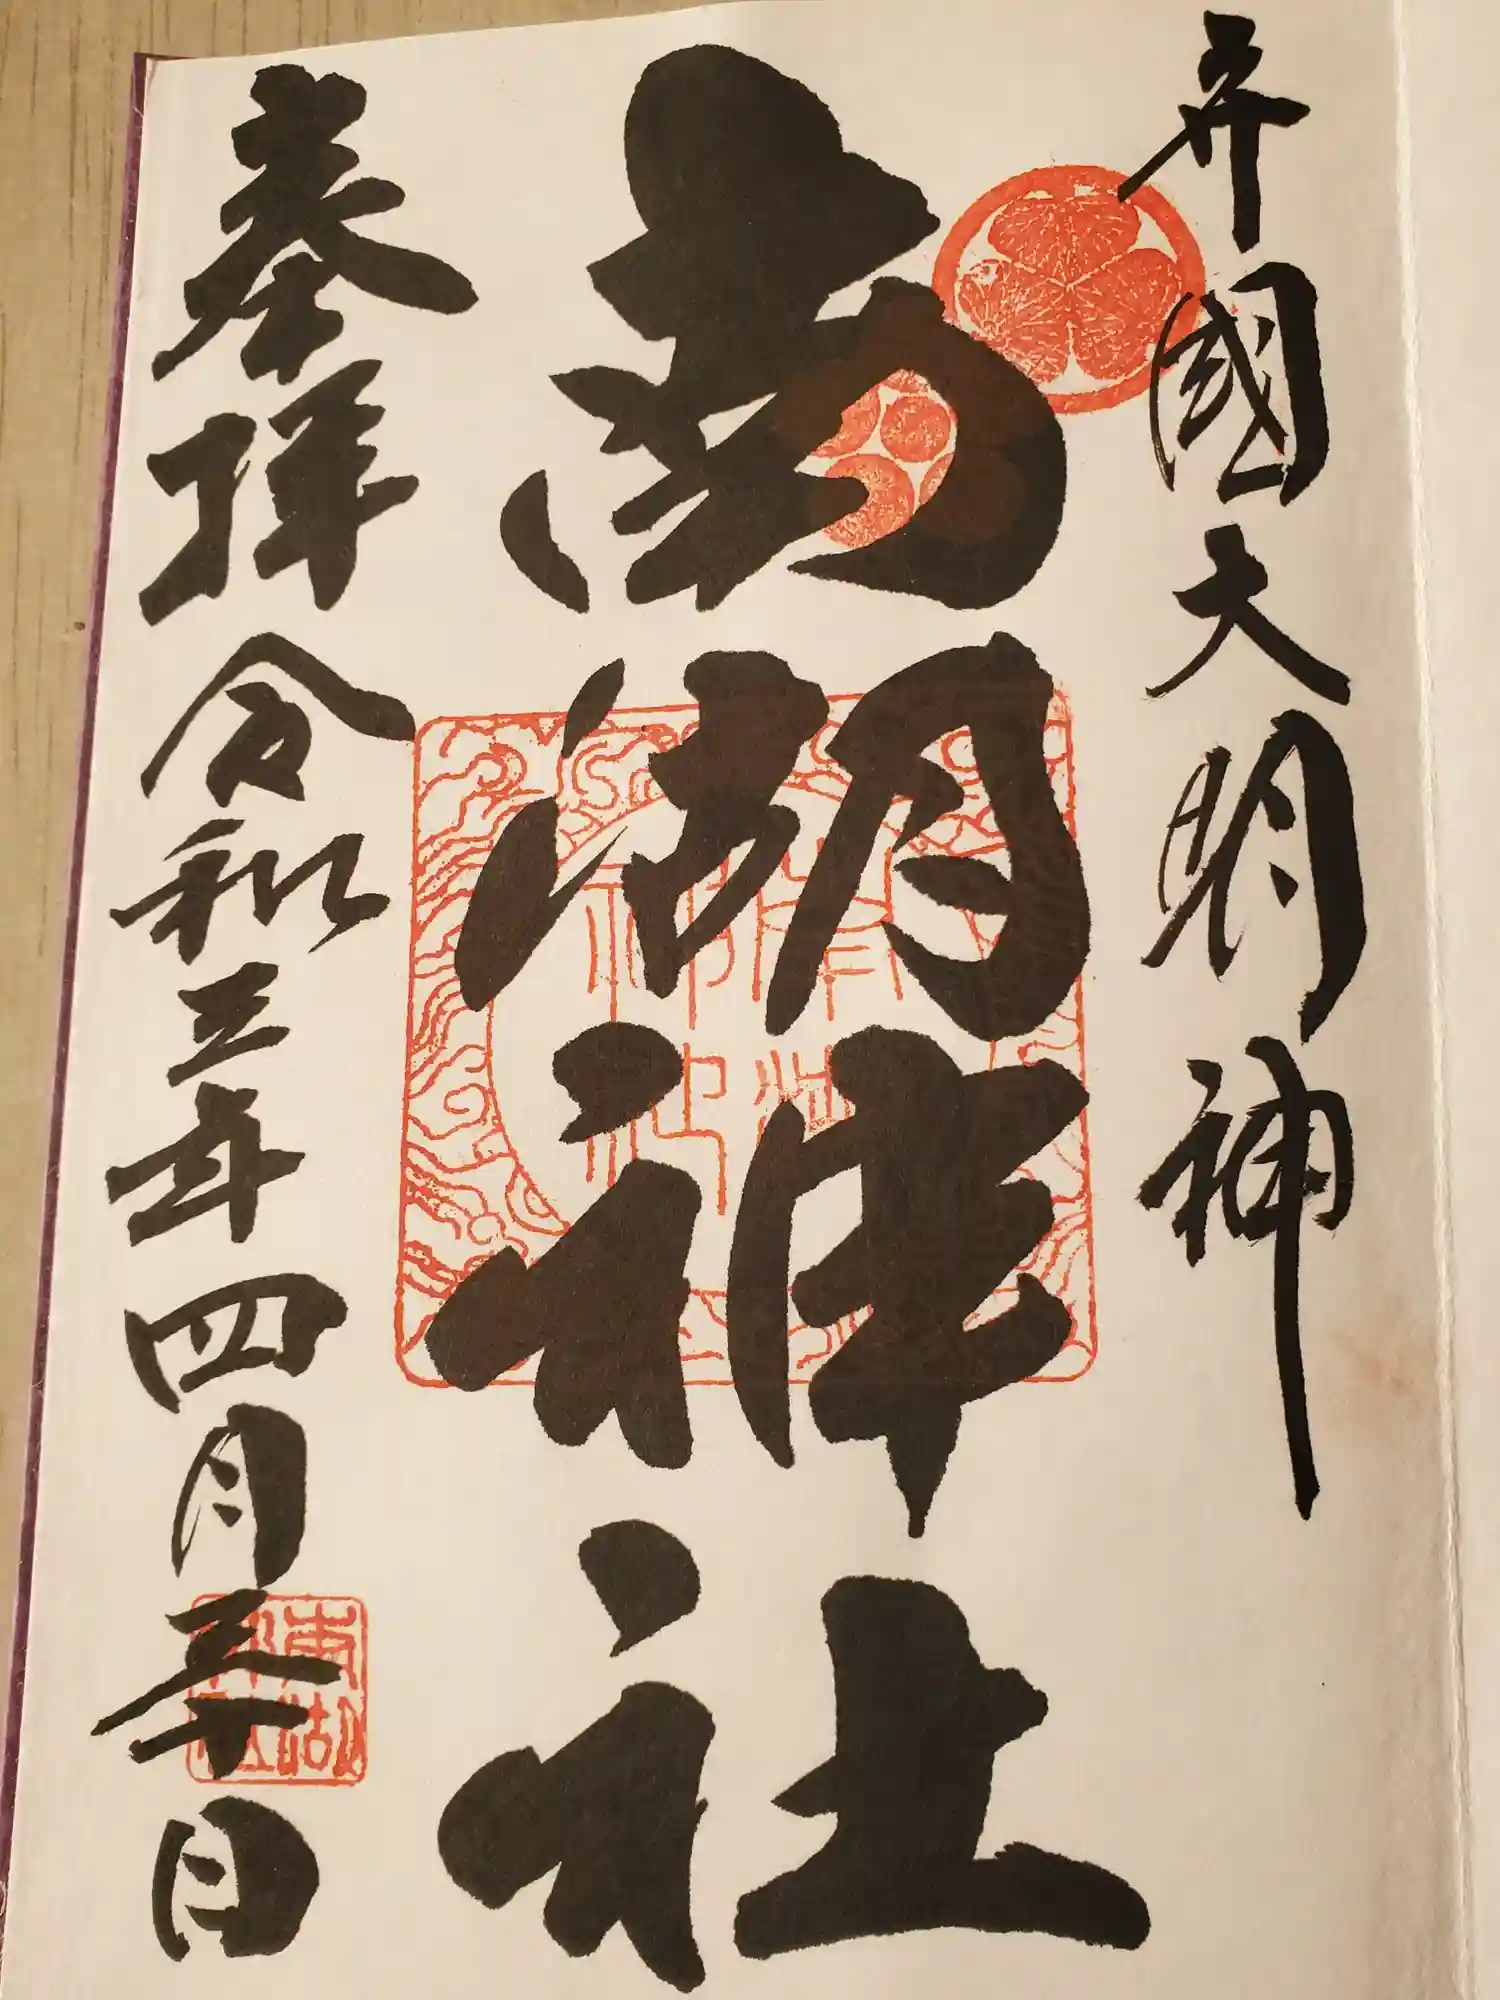 守國大明神
南湖神社
奉拝 令和三年四月三十日
南湖神社
南湖神社